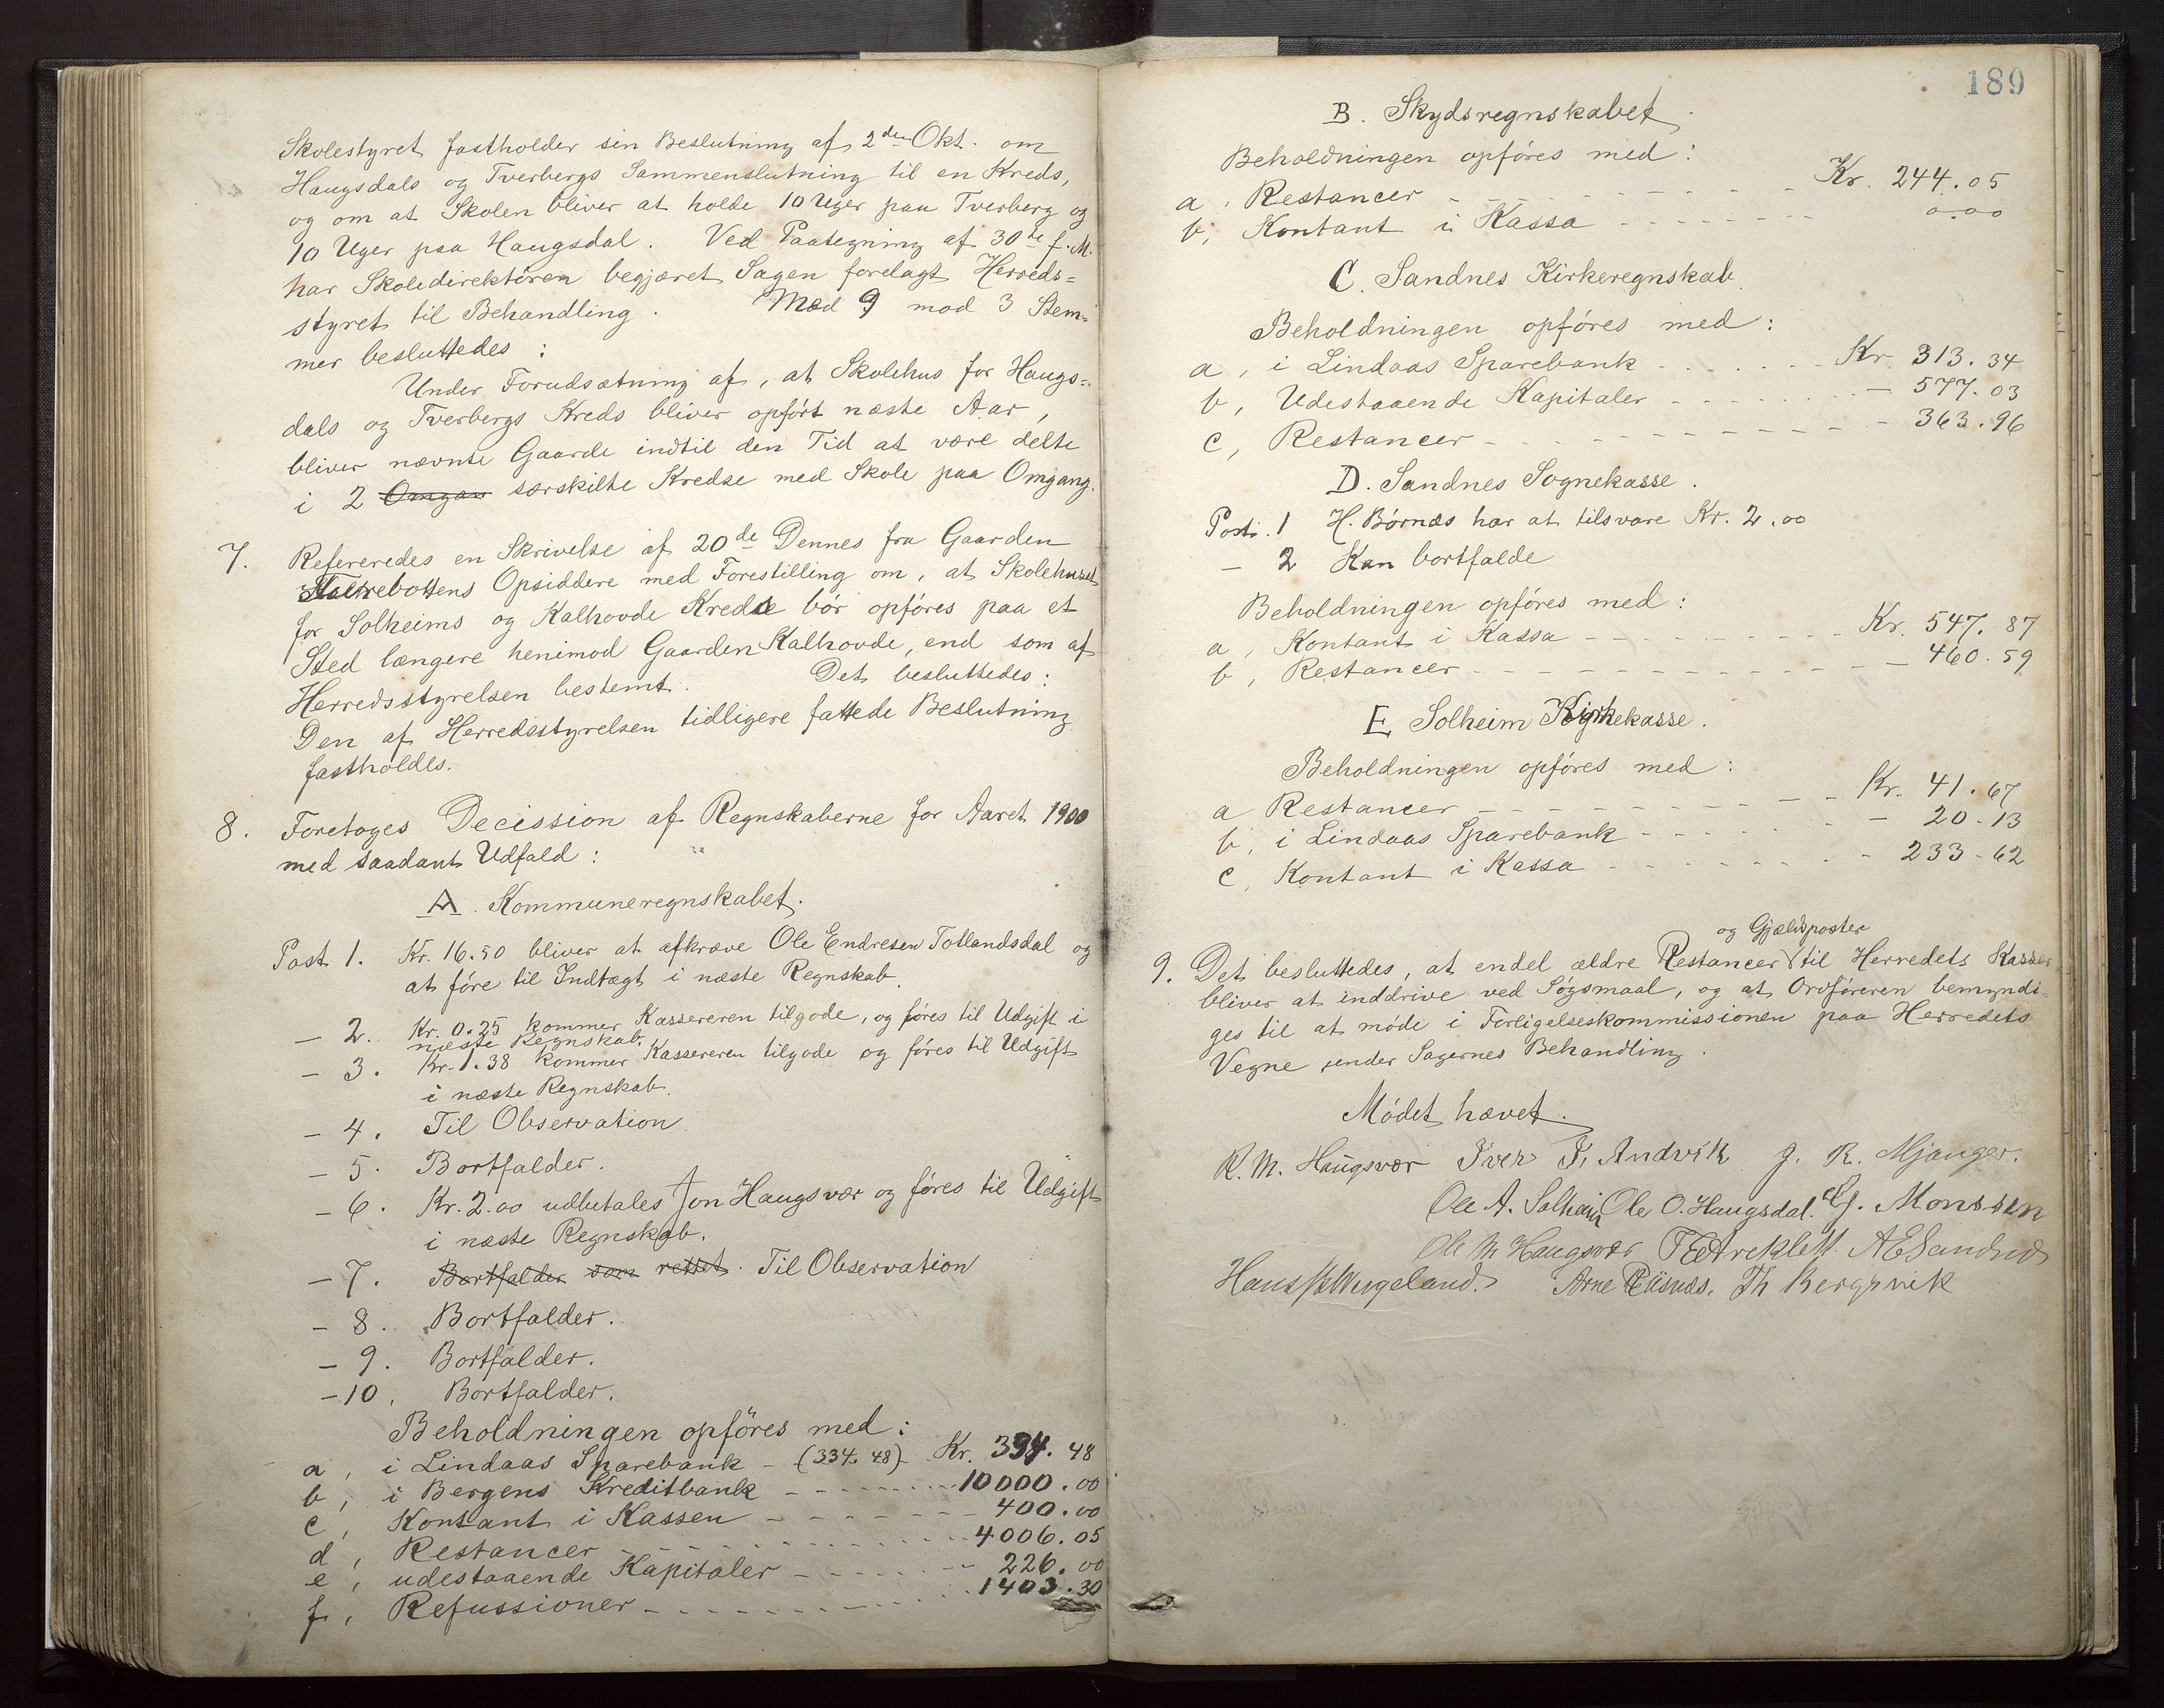 Skolestyret fastholder sin Beslutning af 2den Okt. om
Haugsdals og Tverbergs Sammenslutning til en Kreds,
og om at Skolen bliver at holde 10 Uger paa Tverberg og
10 Uger paa Haugsdal. Ved Paategning af 30te f. M.
har Skoledirektören begjæret Sagen forelagt Herreds=
styret til Behandling. Med 9 mod 3 Stem-
mer besluttedes:
Under Forudsætning af, at Skolehus for Haugs=
dals og Tverbergs Kreds bliver opfört næste Aar,
bliver nævnte Gaarde indtil den Tid at være delte
i 2 Omgan særskilte Kredse med Skole paa Omgang.
7. Refereredes en Skrivelse af 20de Dennes fra Gaarden
Opsiddere med Forestilling om, at Skolehuset
for Solheims og Kalhovde Kreds bör opföres paa et
Sted længere henimod Gaarden Kalhovde, end som af
Herredsstyrelsen bestemt. Det besluttedes:
Den af Herredsstyrelsen tidligere fattede Beslutning
fastholdes.
8. Foretoges Decission af Regnskaberne for Aaret 1900
med saadant Udfald:
A. Kommuneregnskabet.
Post 1. Kr. 16.50 bliver at afkræve Ole Endresen Totlandsdal og
at före til Indtægt i næste Regnskab.
— 2. Kr. 0.25 kommer Kassereren tilgode, og föres til Udgift i
næste Regnskab.
— 3. Kr. 1.38 kommer Kassereren tilgode og föres til Udgift
i næste Regnskab.
— 4. Til Observation
— 5. Bortfalder.
— 6. Kr. 2.00 udbetales Jon Haugsvær og föres til Udgift
i næste Regnskab.
— 7. Bortfalder som rettet. Til Observation
— 8. Bortfalder.
— 9. Bortfalder.
— 10. Bortfalder.
Beholdningen opföres med:
a, i Lindaas Sparebank - (334.48) Kr. 334.48
b, i Bergens Kreditbank - - - - 10000.00
c, Kontant i Kassen - - - - 400.00
d, Restancer - - - - 4006.05
e, udestaaende Kapitaler - - - - 226.00
f, Refussioner - - - - 1403.30
189
B. Skydsregnskabet.
Beholdningen opföres med:
a, Restancer - - - - Kr. 244.05
b, Kontant i Kassa - - - - 0.00
C. Sandnes Kirkeregnskab.
Beholdningen opföres med:
a, i Lindaas Sparebank - - - - Kr. 313.34
b, Udestaaende Kapitaler - - - - — 577.03
c, Restancer - - - - 363.96
D. Sandnes Sognekasse.
Post. 1 H. Börnæs har at tilsvare Kr. 2.00
— 2 Kan bortfalde
Beholdningen opföres med:
a, Kontant i Kassa - - - - Kr. 547.87
b, Restancer - - - - — 460.59
E Solheim Kirkekasse.
Beholdningen opföres med:
a Restancer - - - - Kr. 41.67
b, i Lindaas Sparebank - - - - — 20-13
c, Kontant i Kassa - - - - 233-62
og Gjældsposter
9. Det besluttedes, at endel ældre Restancer til Herredets Kasser
bliver at inddrive ved Sögsmaal, og at Ordföreren bemyndi-
ges til at möde i Forligelseskommissionen paa Herredets
Vegne under Sagernes Behandling.
Mödet hævet.
R. M. Haugsvær Iver T. Andvik J. R. Mjanger.
Ole A. Solheim Ole O. Haugsdal. G. Monssen
Ole M Haugsvær A E Sandnes
Hans Wergeland. Arne Risnæs. Th Bergsvik